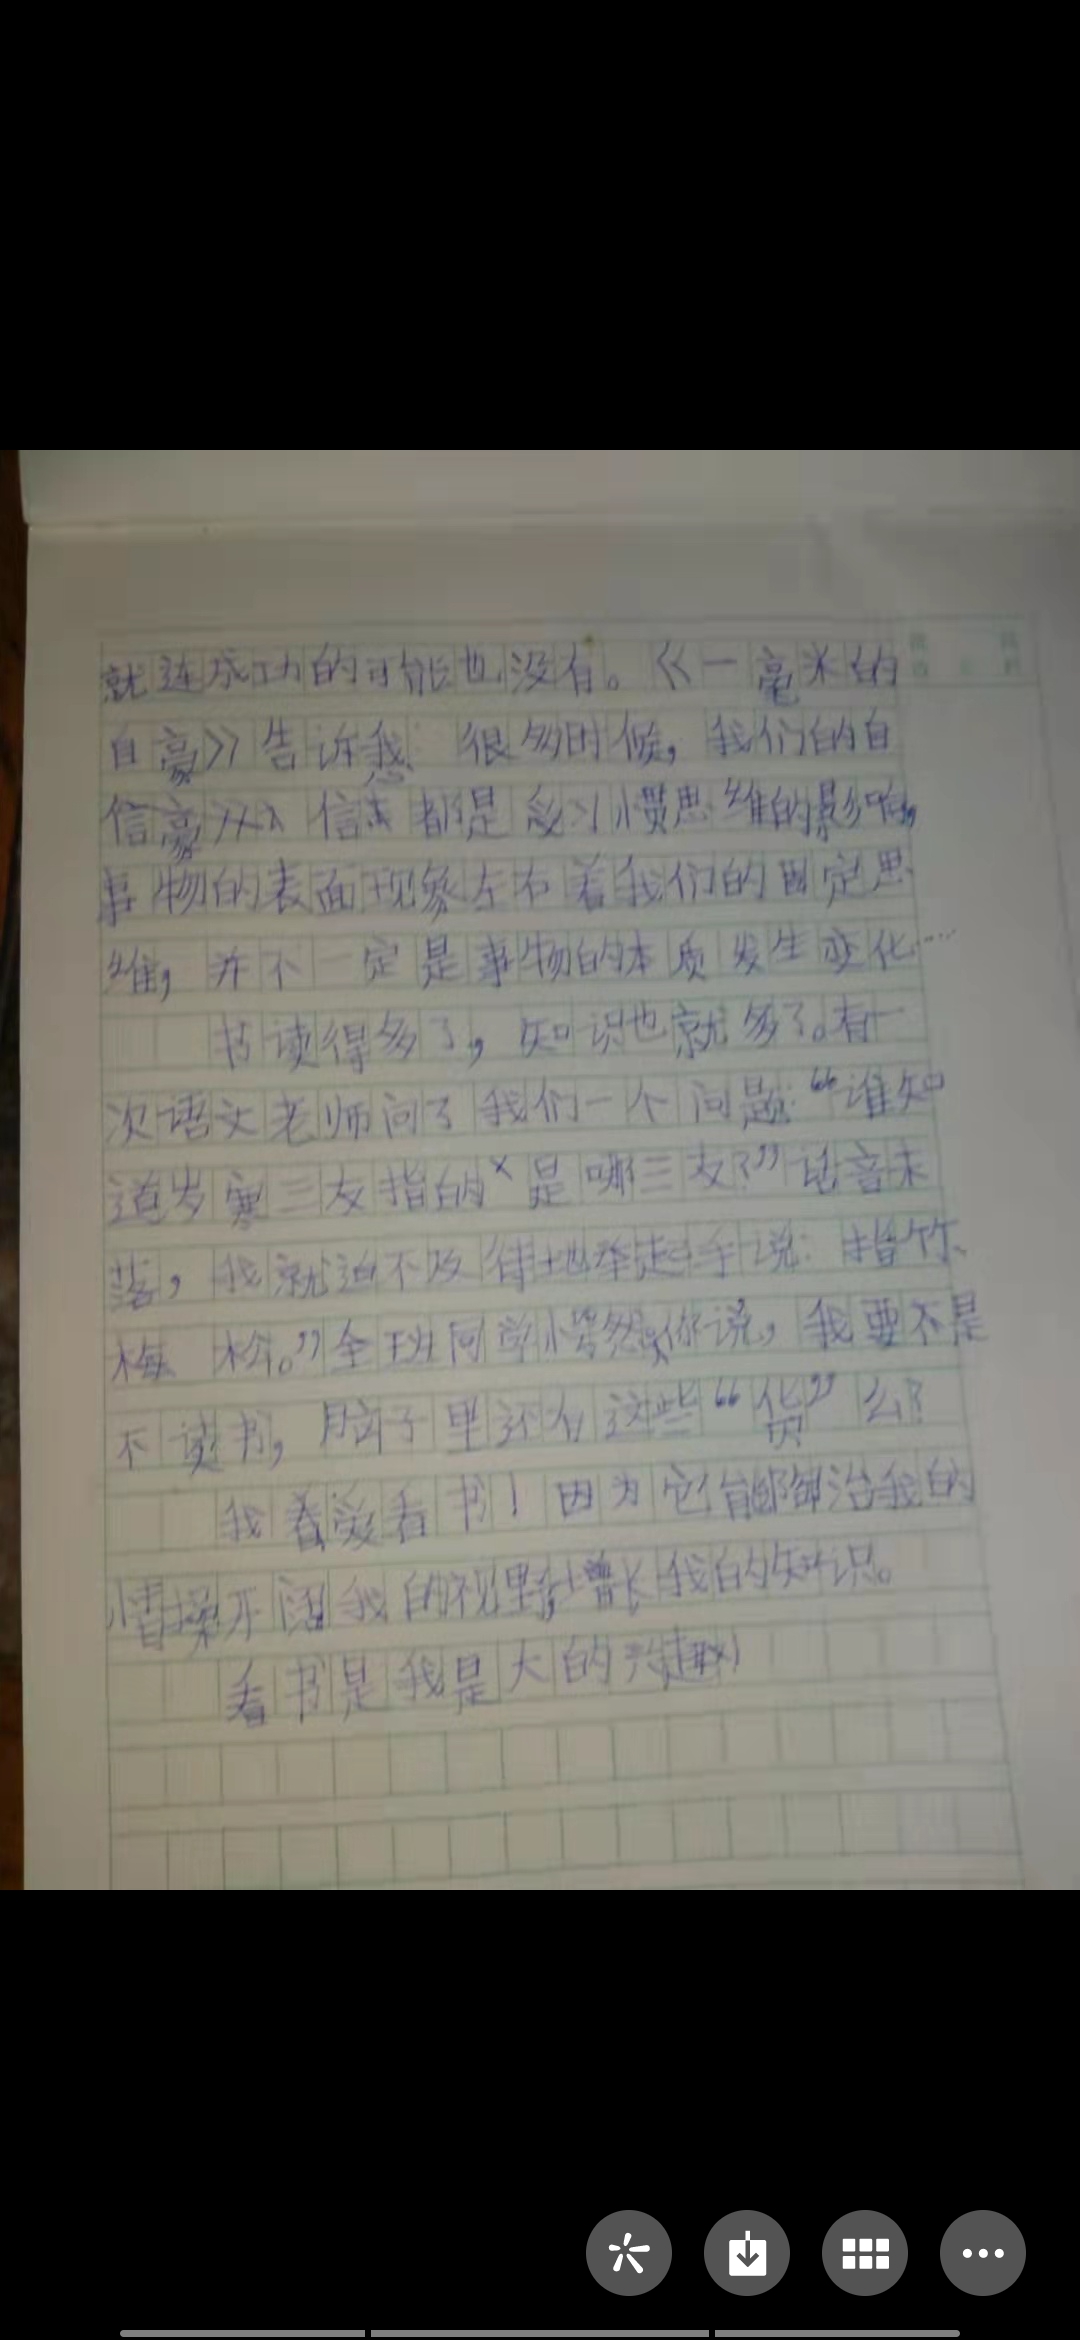 就连成功的可能也没有。《一毫米的
自豪》告诉我：很多时候，我们的自
信 都是 习惯思维的影响，
事物的表面现象左右着我们的固定思
维，并不一定是事物的本质发生变化……
书读得多了，知识也就多了。有一
次语文老师问了我们一个问题：“谁知
道岁寒三友指的是哪三友？”话音未
落，我就迫不及待地举起手说：指竹、
梅 松。”全班同学 然 你说，我要不是
不读书，脑子里还有这些“货”么？
我 爱看书！因为它能 治我的
情操开阔我的视野，增长我的知识。
看书是我是大的兴趣！